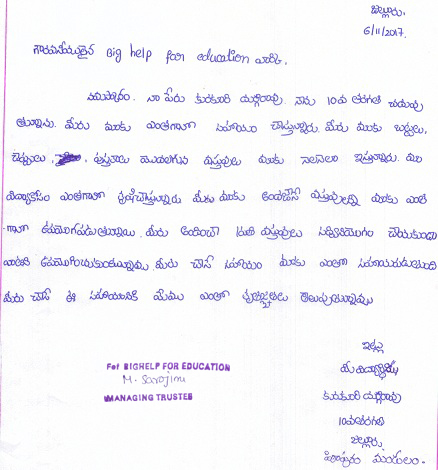 జల్లూరు,
6/11/2017.
గౌరవనీయులైన Big help for education వారికి,
నమస్కారం. నా పేరు కురుకూరి యర్రిబాబు. నేను 10వ తరగతి చదువు
తున్నాను. మీరు మాకు ఎంతగానో సహాయం చేస్తున్నారు. మీరు మాకు బుక్సు,
పుస్తకాలు మొదలగున వస్తువులు మాకు నెలనెలా ఇస్తున్నారు. మా
విద్యాకోసం ఎంతగానో కృషిచేస్తున్నారు మీరు మాకు అందచేసే వస్తువులన్ని మాకు ఎంత
గానో ఉపయోగపడుతున్నాయి. మీరు అందించే ప్రతి వస్తువును చేయకుండా
ఉపయోగించుకుంటున్నాము. మీరు చేసే సహాయం మాకు ఎంతో సహాయపడుతుంది
మీరు చేసే ఈ సహాయానికి మేము ఎంతో కృతజ్ఞతలు తెలుపుతున్నాము
ఇట్లు
మీ విద్యార్థి
కురుకూరి యర్రిబాబు
10వ తరగతి
జల్లూరు.
పిఠాపురం మండలం.
For BIGHELP FOR EDUCATION
M. Sarojini
MANAGING TRUSTEE